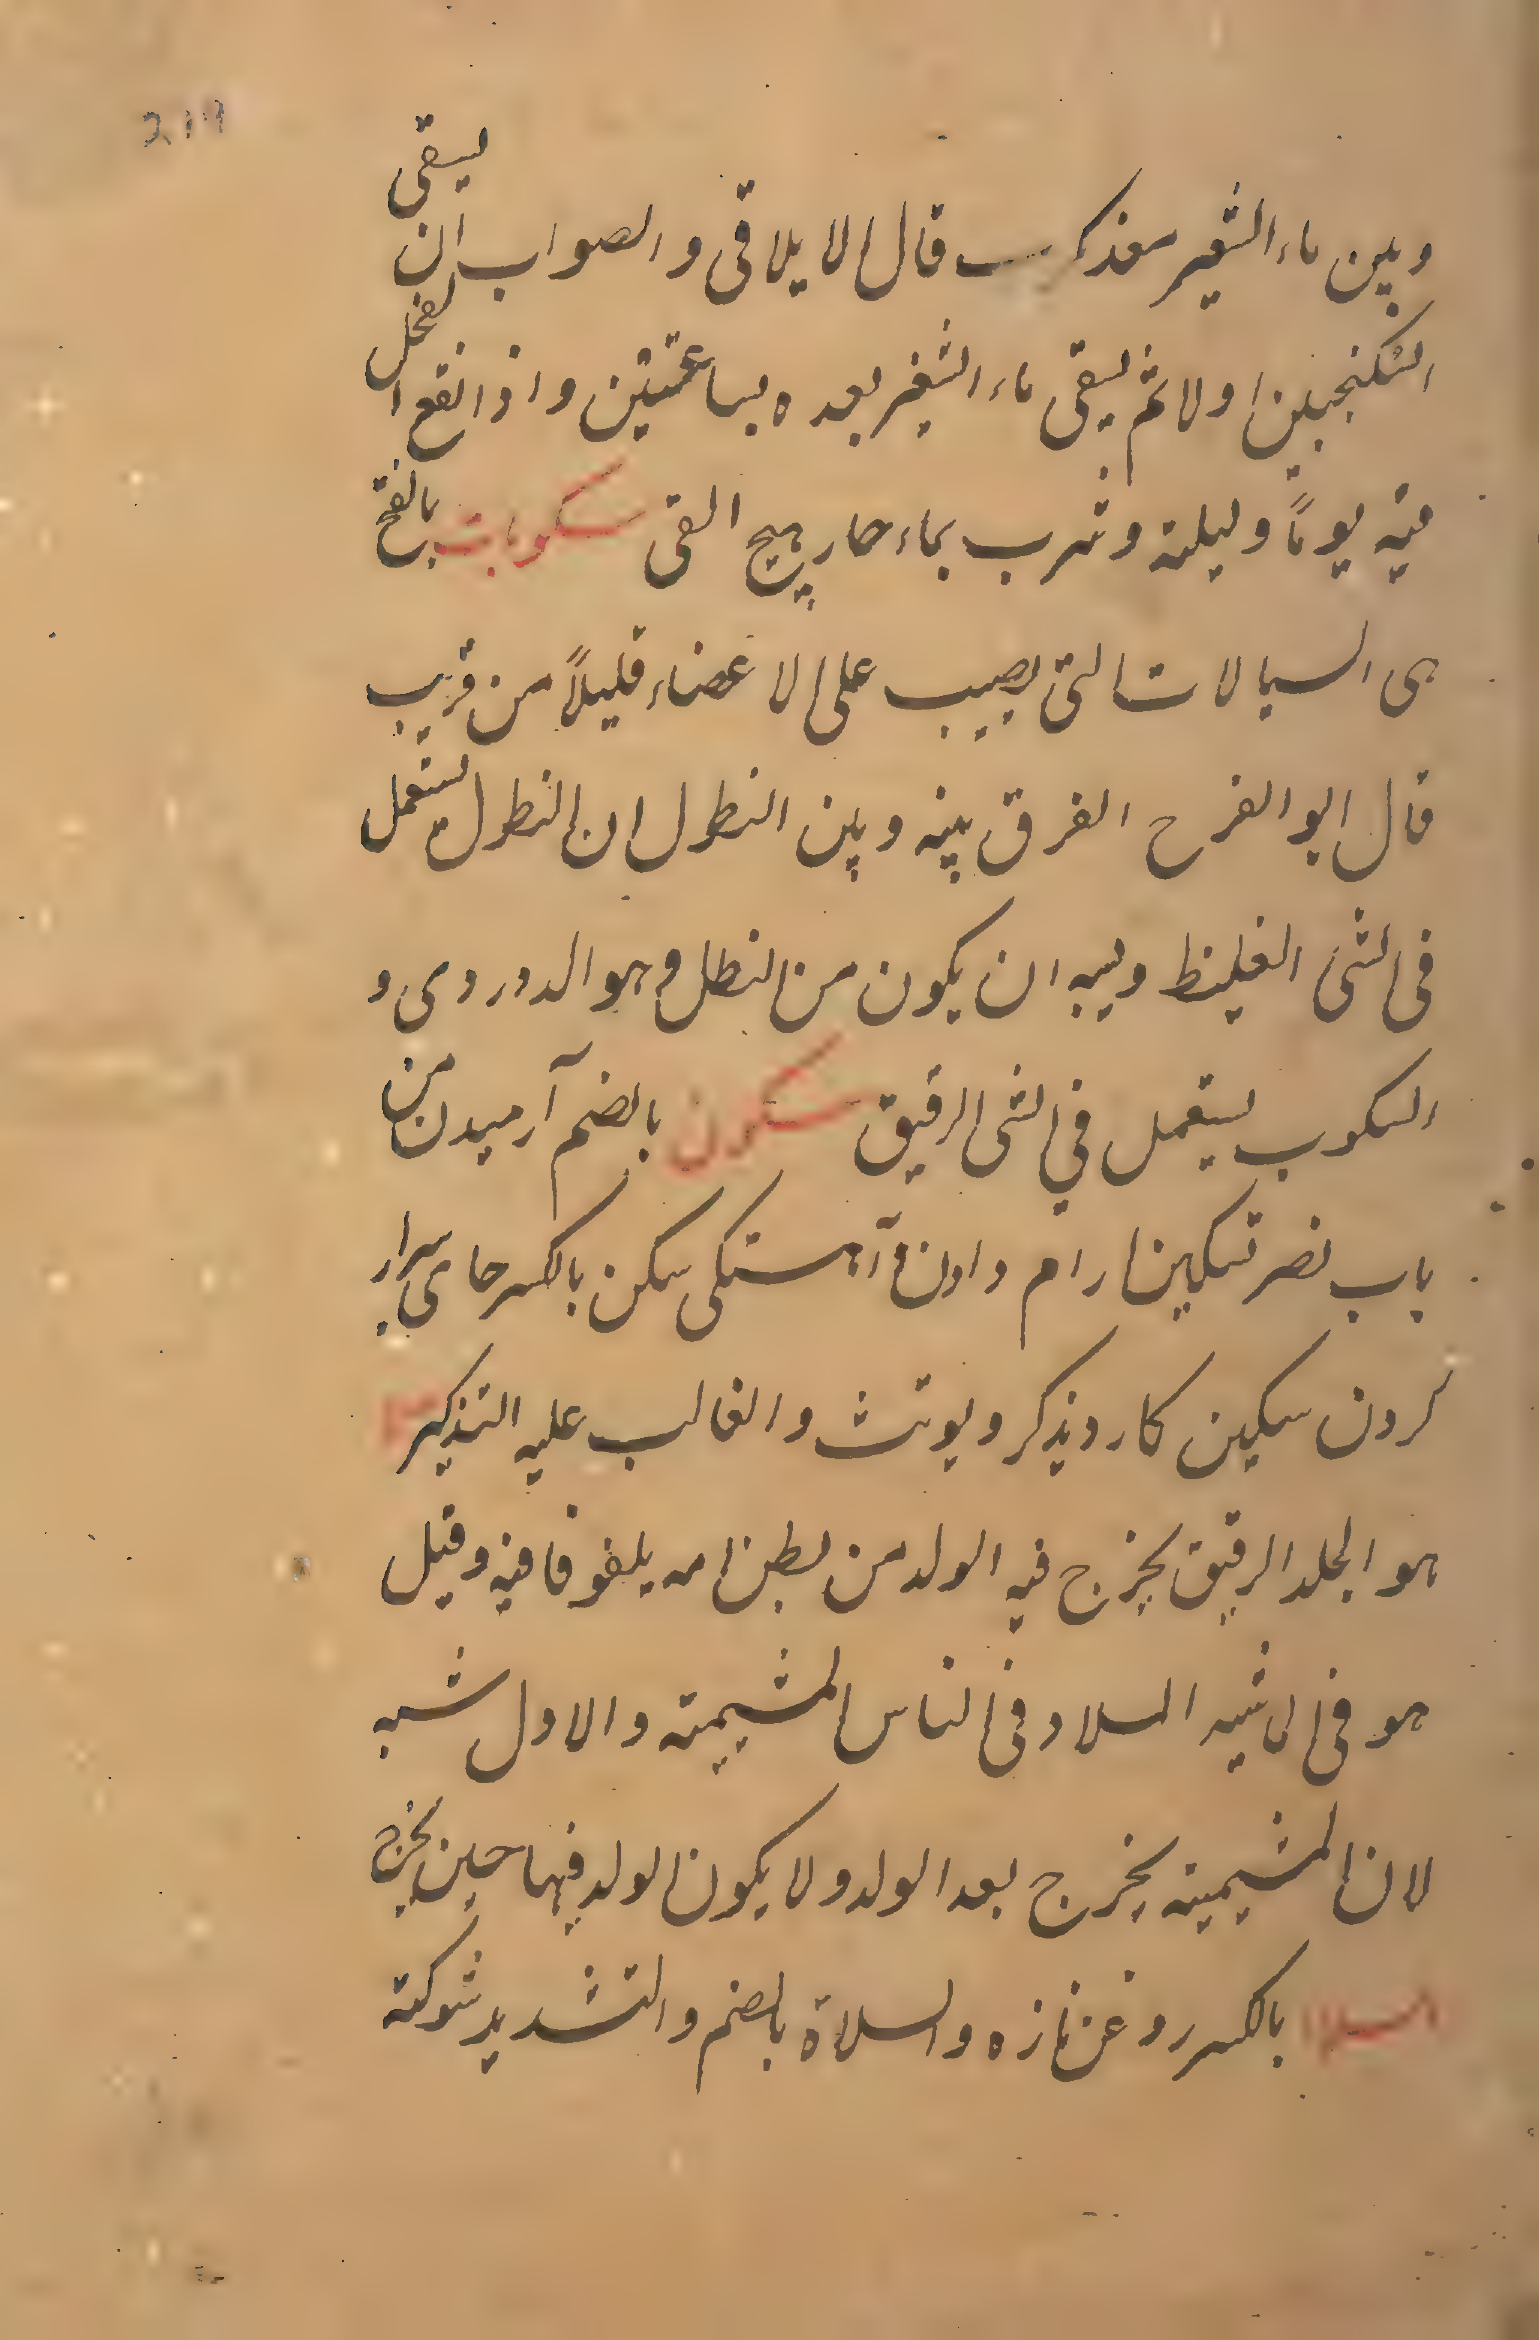 219
وبین ماء الشعیر معذکرب قال لا یلاقی والصواب ان یسقی
السکنجبین اولا ثم یسقی ماء الشعیر بعده بساعتین واذا نقع الفجل
فیه یوماً ولیلة وشرب بماء حار یهیج القی سکوبات بالفتح
هی السیالات التی یصیب علی الاعضاء قلیلاً من قریب
قال ابو الفرح الفرق بینه وبین النطول ان النطول یستعمل
فی الشی الغلیظ ویسبه ان یکون من النطل وهو الدوردی و
السکوب یستعمل فی الشی الرقیق سکون بالضم آرمیدن من
باب نصر تسکین ارام دادن آهستکی سکن بالکسر جای
کردن سکین کارد یذکر ویونث والغالب علیه التذکیر
هو الجلد الرقیق یخرج فیه الولد من بطن امه یلفوفا فیه وقیل
هو فی الماشیه السلا وفی الناس المشیمة والاول شبه
لان المشیمیة یخرج بعد الولد ولا یکون الولد فیها حین یخرج
السلا بالکسر روغن تازه والسلاة بالضم والتشدید شوکة